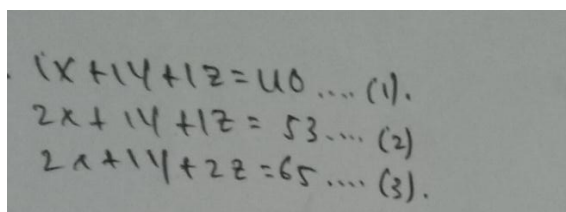 1x+1y+1z=40....(1).
2x+1y+1z=53....(2)
2x+1y+2z=65....(3).